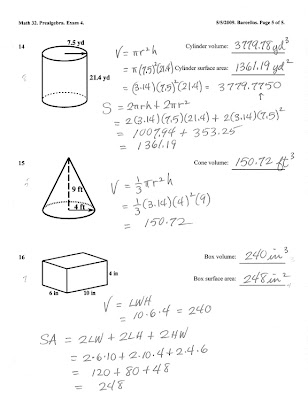 Math 32, Prealgebra. Exam 4. 5/5/2009. Barcellos. Page 5 of 5.
14 7.5 yd V = πr²h Cylinder volume: 3779.78 yd³
= π(7.5)²(21.4) Cylinder surface area: 1361.19 yd²
21.4 yd = (3.14)(7.5)²(21.4) = 3779.7750
S = 2πrh + 2πr² ↑
= 2(3.14)(7.5)(21.4) + 2(3.14)(7.5)²
= 1007.94 + 353.25
= 1361.19
15 Cone volume: 150.72 ft³
V = ⅓πr²h
9 ft = ⅓(3.14)(4)²(9)
4 ft = 150.72
16 Box volume: 240 in³
4 in Box surface area: 248 in²
6 in 10 in
V = LWH
= 10·6·4 = 240
SA = 2LW + 2LH + 2HW
= 2·6·10 + 2·10·4 + 2·4·6
= 120 + 80 + 48
= 248